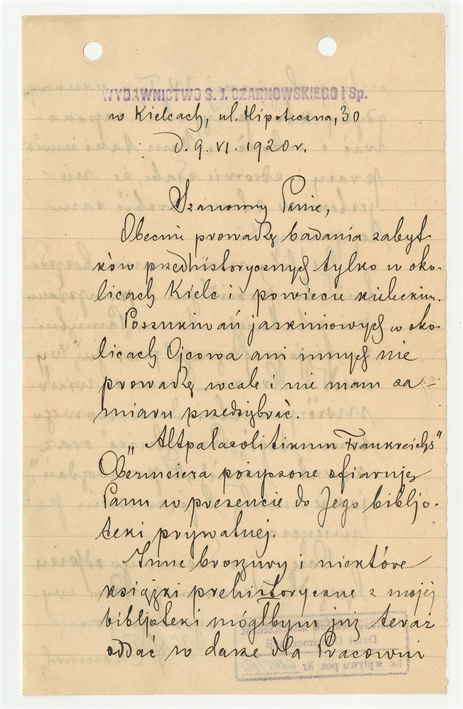 WYDAWNICTWO S. J. CZARNOWSKIEGO i Sp.
w Kielcach, ul. Hipoteczna, 30
d. 9. VI. 1920 r.
Szanowny Panie,
Obecnie prowadzę badania zabyt-
ków przedhistorycznych tylko w oko-
licach Kielc i powiecie kieleckim.
Poszukiwań jaskiniowych w oko-
licach Ojcowa ani innych nie
prowadzę wcale i nie mam za-
miaru przedsiębrać.
"Altpalaeolitikum Frankreichs"
Obermeiera pożyczone ofiaruję
Panu w prezencie do Jego biblijo-
teki prywatnej.
Inne broszury i niektóre
książki prehistoryczne z mojej
biblijoteki mógłbym już teraz
oddać w darze dla Pracowni